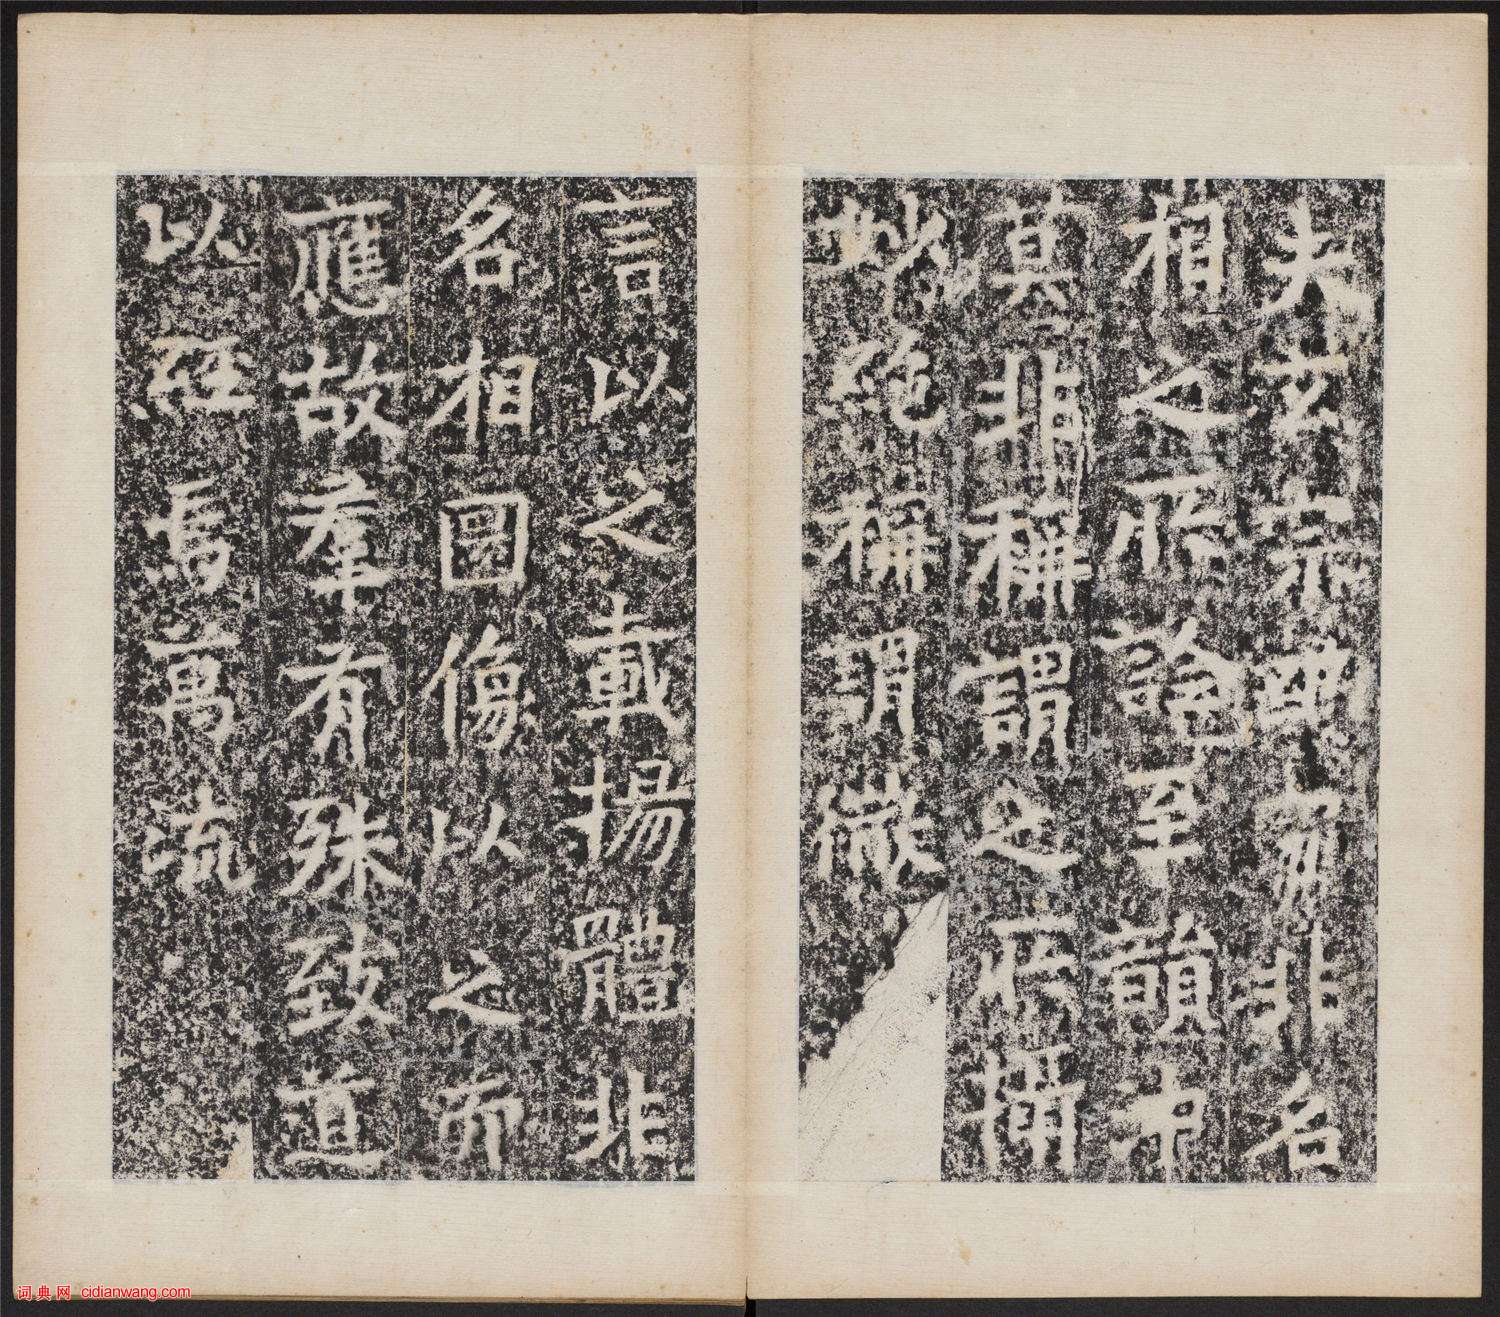 夫玄宗沖宷非名
相之所詮至韻沖
莫非稱謂之所攝
妙絶稱謂微
言以之載揚體非
名相圖像以之而
應故羣有殊致道
以經焉萬流
词典网 cidianwang.com